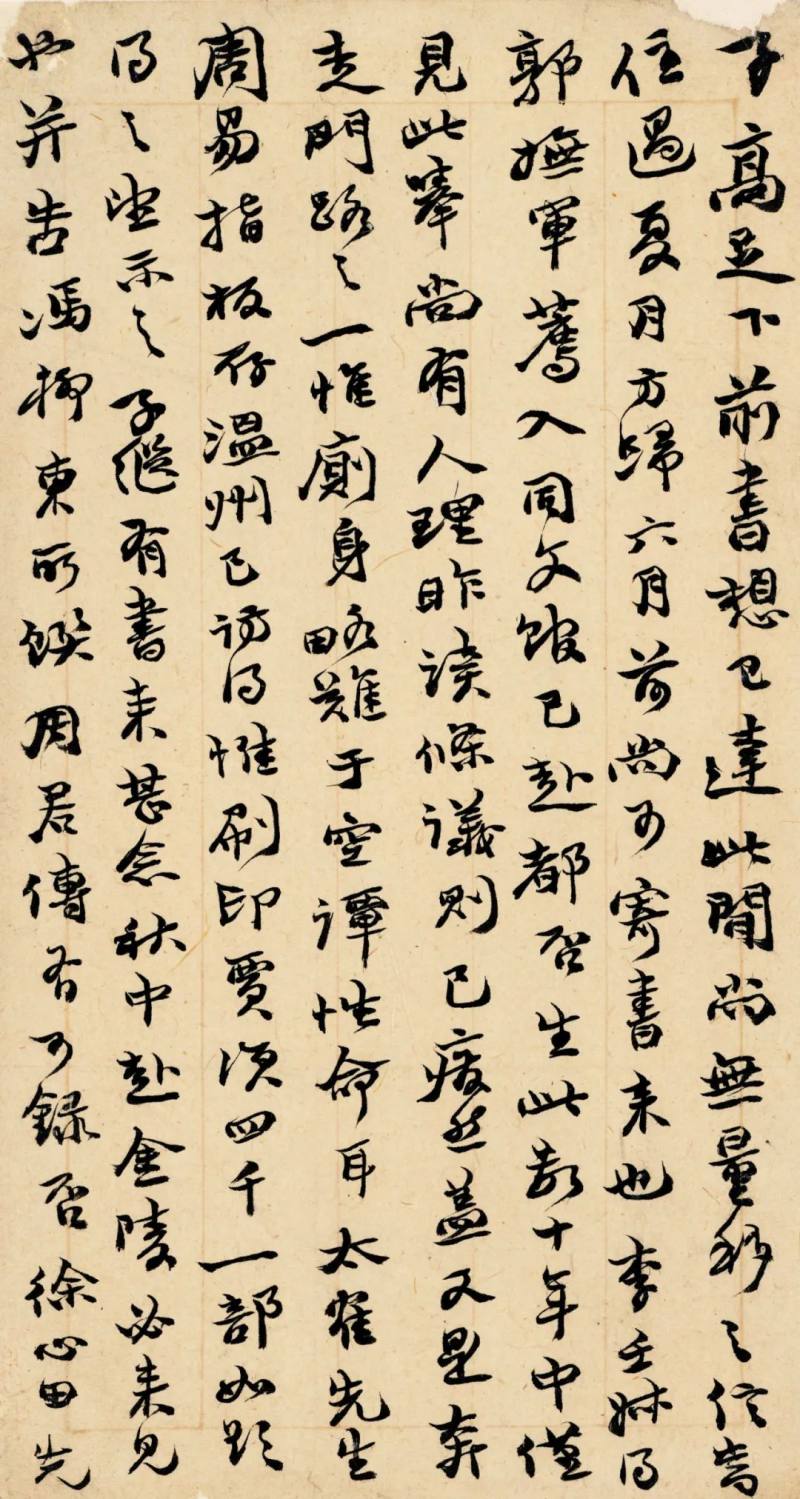 子高足下前書想已達此間尚無量移之信當
住過夏月方歸六月前尚可寄書來也李壬姊得
郭撫軍薦入同文館已赴都否生此數十年中僅
見此舉尚有人理昨讀條議則已癈然蓋又是奔
走門路之一惟廁身略難于空譚性命耳太崔先生
周易指板存温州已訪得惟刷印賈須四千一部如欲
得之望示之子繼有書來甚念秋中赴金陵必來見
也并告馮柳東所饌用君傳有可錄否徐心田先